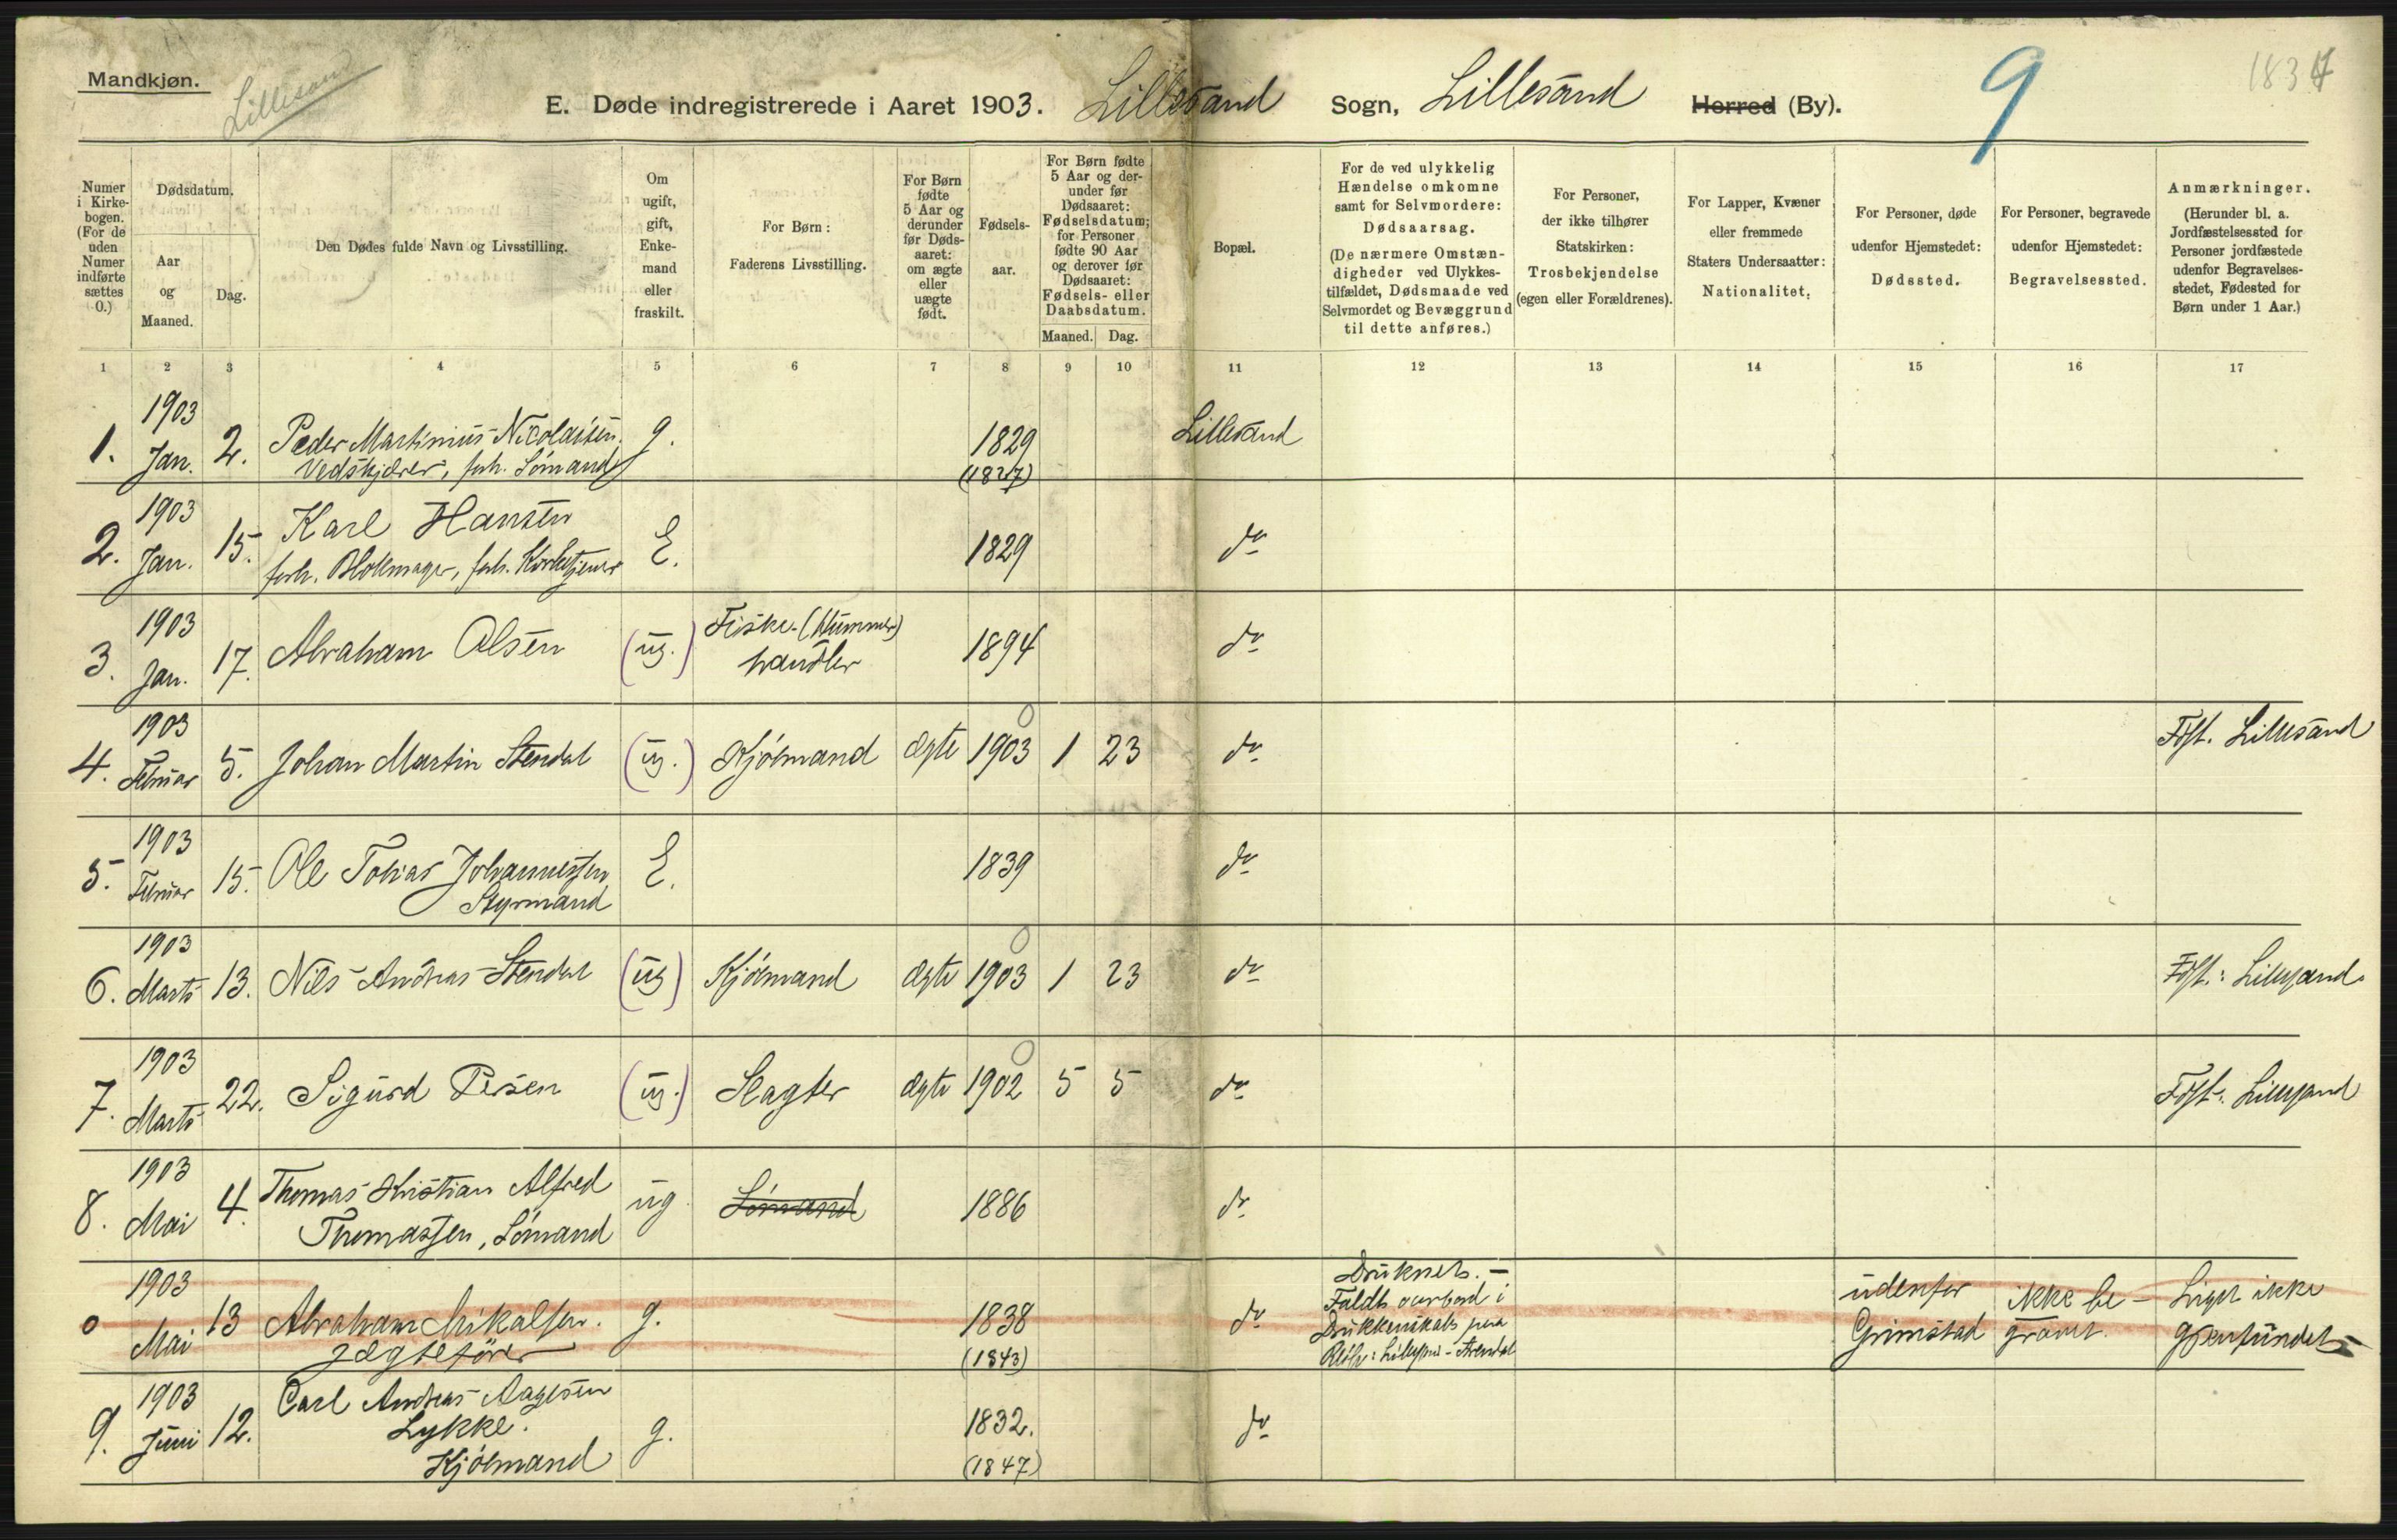 Mandkjøn.
Lillesand
E. Døde indregistrerede i Aaret 1903. Lillesand Sogn, Lillesand Herred (By).
9
1834
Numer i Kirkebogen. (For de uden Numer indførte sættes 0.)
Dødsdatum.
Aar og Maaned.
Dag.
Den Dødes fulde Navn og Livsstilling.
Om ugift, gift, Enkemand eller fraskilt.
For Børn: Faderens Livsstilling.
For Børn fødte 5 Aar og derunder før Dødsaaret: om ægte eller uægte født.
Fødselsaar.
For Børn fødte 5 Aar og derunder før Dødsaaret: Fødselsdatum; for Personer fødte 90 Aar og derover før Dødsaaret: Fødsels- eller Daabsdatum.
Maaned. Dag.
Bopæl.
For de ved ulykkelig Hændelse omkomne samt for Selvmordere: Dødsaarsag. (De nærmere Omstændigheder ved Ulykkestilfældet, Dødsmaade ved Selvmordet og Bevæggrund til dette anføres.)
For Personer, der ikke tilhører Statskirken: Trosbekjendelse (egen eller Forældrenes).
For Lapper, Kvæner eller fremmede Staters Undersaatter: Nationalitet.
For Personer, døde udenfor Hjemstedet: Dødssted.
For Personer, begravede udenfor Hjemstedet: Begravelsessted.
Anmærkninger. (Herunder bl. a. Jordfæstelsessted for Personer jordfæstede udenfor Begravelsesstedet, Fødested for Børn under 1 Aar.)
1 2 3 4 5 6 7 8 9 10 11 12 13 14 15 16 17
1. 1903 Jan. 2. Peder Martinius Nicolaisen. g. 1829 Lillesand
Vedskjærer, forh. Sömand (1827)
2. 1903 Jan. 15. Karl Hansen E. 1829 do
forh. Blokmager, forh. Kirketjener
3. 1903 Jan. 17. Abraham Olsen (ug.) Fiske-(Hummer) handler 1894 do
4. 1903 Februar 5. Johan Martin Stendal (ug.) Kjöbmand ægte 1903 1 23 do Fdst. Lillesand
5. 1903 Februar 15. Ole Tobias Johannessen E. 1839 do
Styrmand
6. 1903 Marts 13. Nils Andreas Stendal (ug) Kjöbmand ægte 1903 1 23 do Fdst.: Lillesand
7. 1903 Marts 22. Sigurd Persen (ug.) Slagter ægte 1902 5 5 do Fdst: Lillesand
8. 1903 Mai 4. Thomas Kristian Alfred ug. Sömand 1886 do
Thomassen, Sömand
0 1903 Mai 13 Abraham Mikalsen. g. 1838 do
Jægtefører (1843)
Druknet. —
Faldt overbord i
Drukkenskab paa
Reise: Lillesand - Arendal
udenfor Grimstad
ikke begravet.
Liget ikke gjenfundet
9. 1903 Juni 12. Carl Andreas Aagesen g. 1832. do
Lykke.
Kjöbmand (1847)